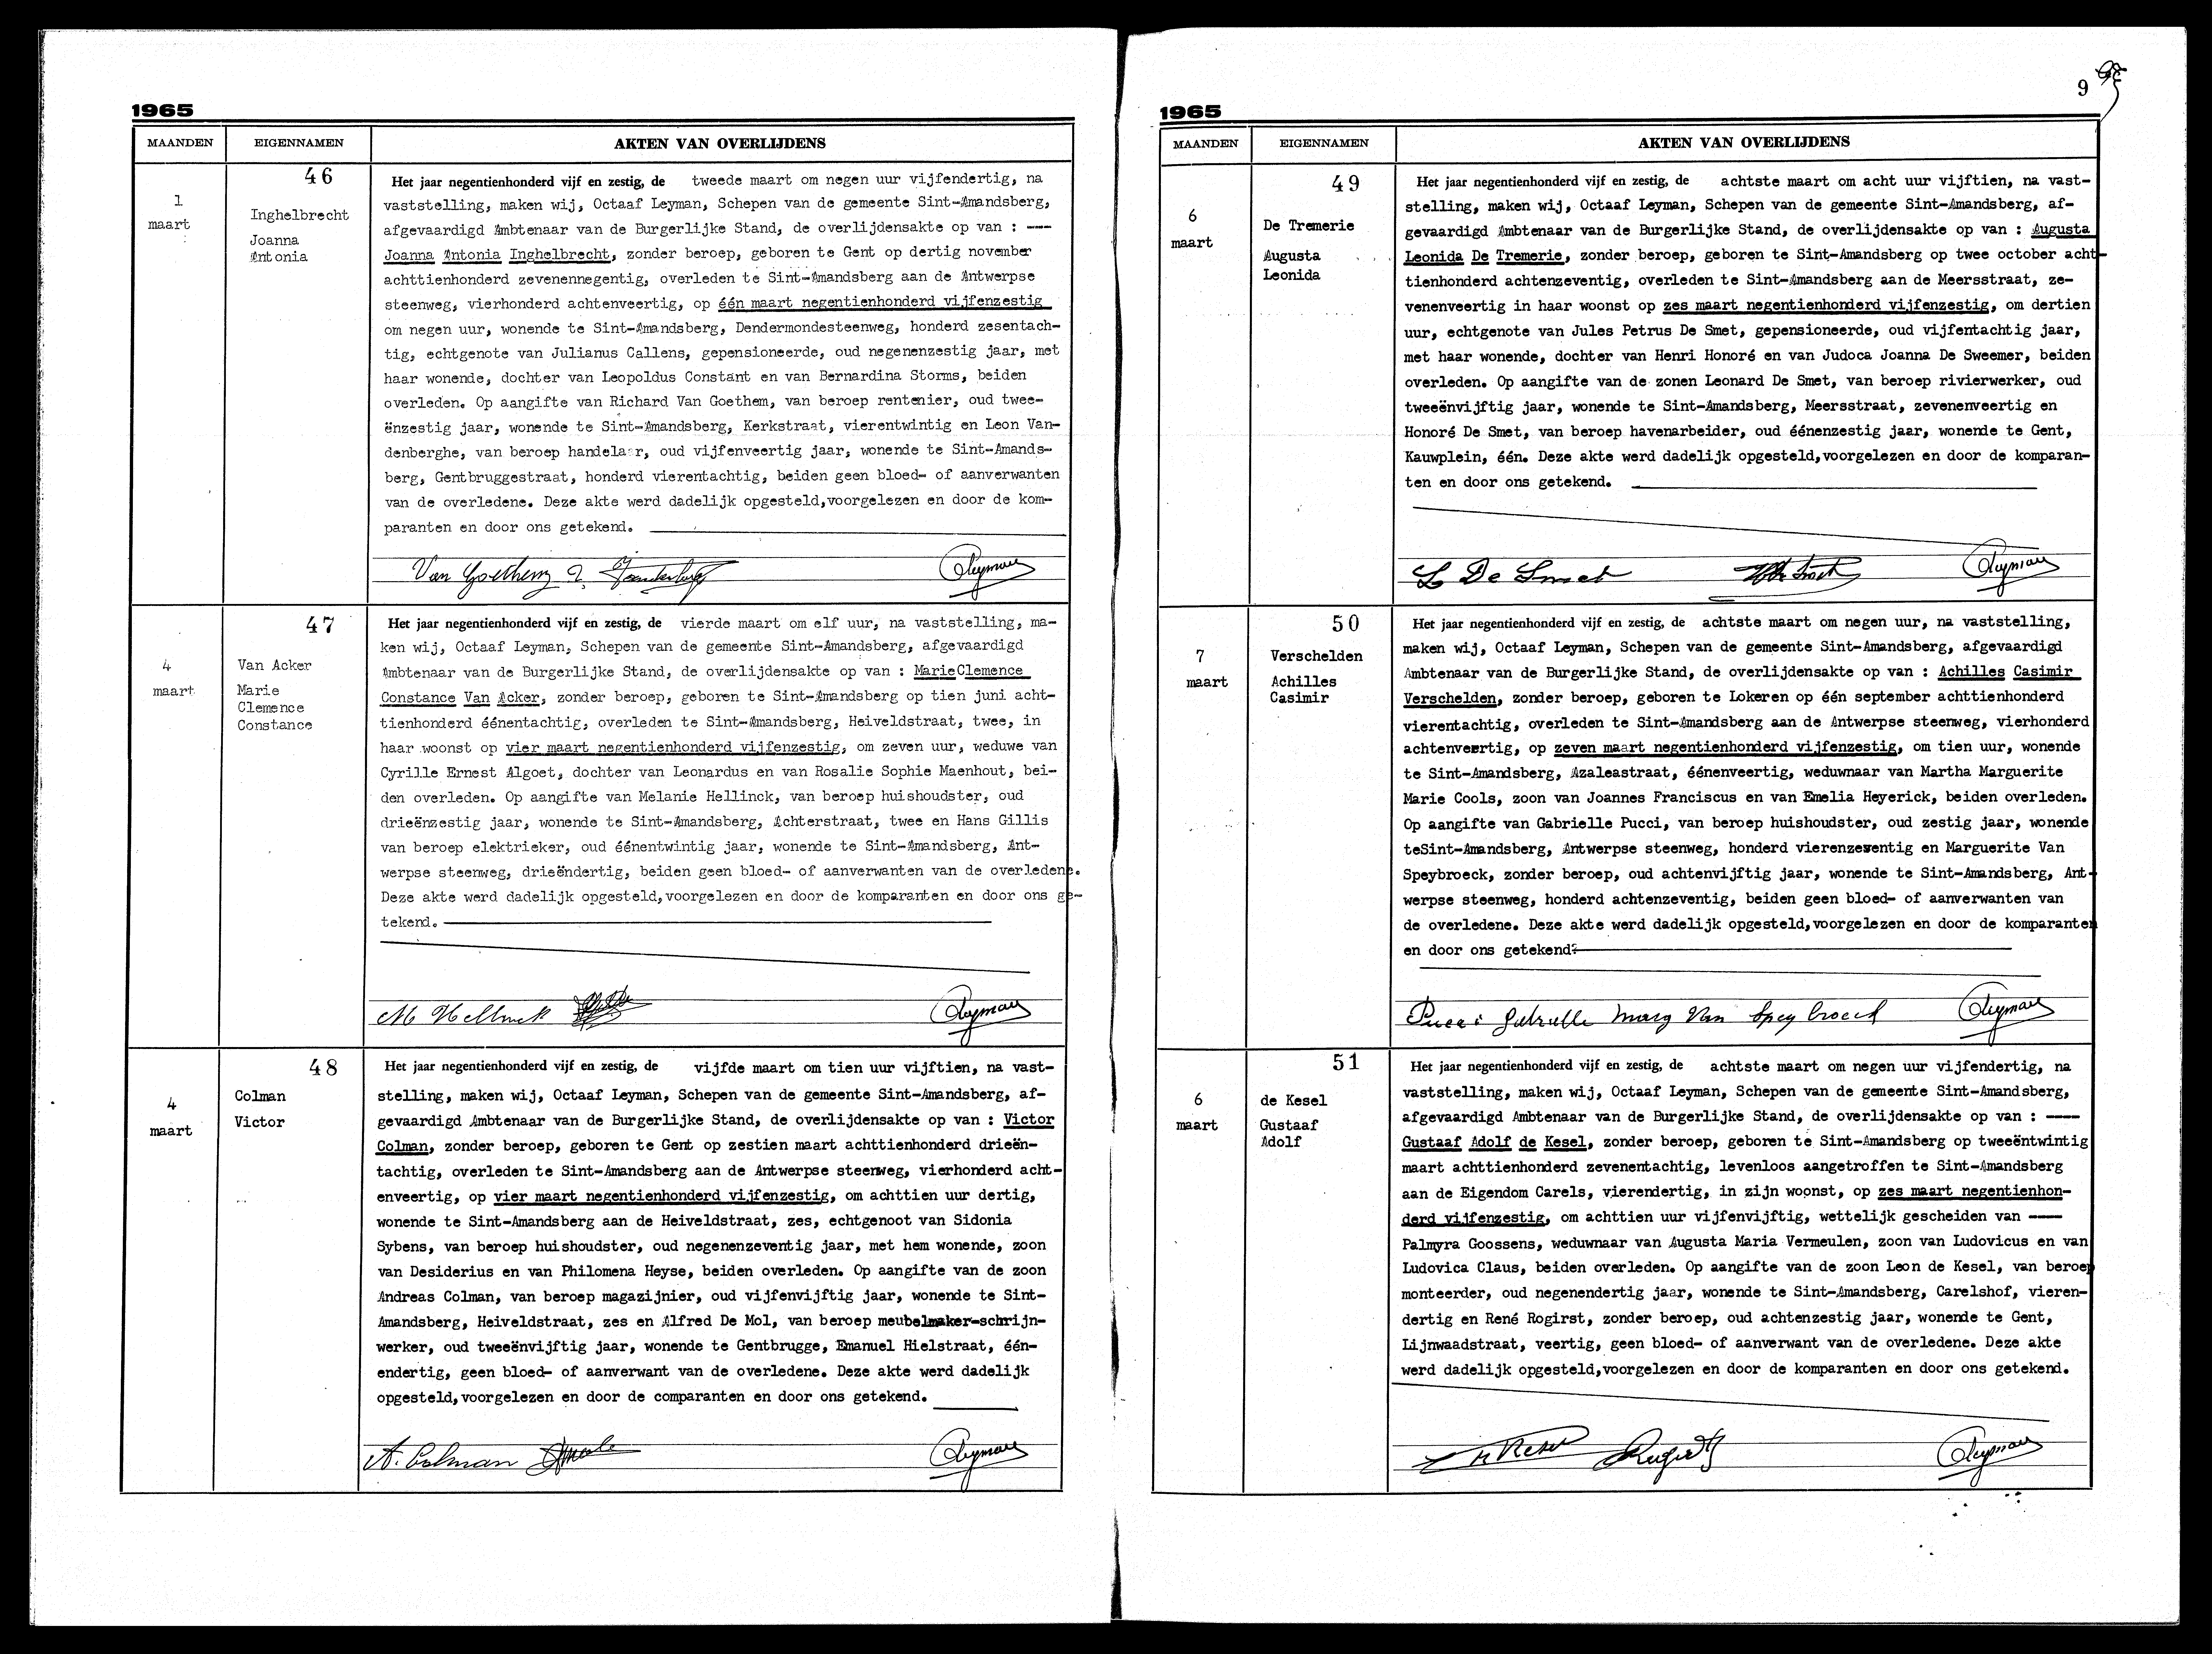 1965
MAANDEN EIGENNAMEN AKTEN VAN OVERLIJDENS
46
1
maart
Inghelbrecht
Joanna
Antonia
Het jaar negentienhonderd vijf en zestig, de tweede maart om negen uur vijfendertig, na
vaststelling, maken wij, Octaaf Leyman, Schepen van de gemeente Sint-Amandsberg,
afgevaardigd Ambtenaar van de Burgerlijke Stand, de overlijdensakte op van : ---
Joanna Antonia Inghelbrecht, zonder beroep, geboren te Gent op dertig november
achttienhonderd zevenennegentig, overleden te Sint-Amandsberg aan de Antwerpse
steenweg, vierhonderd achtenveertig, op één maart negentienhonderd vijfenzestig
om negen uur, wonende te Sint-Amandsberg, Dendermondesteenweg, honderd zesentach-
tig, echtgenote van Julianus Callens, gepensioneerde, oud negenenzestig jaar, met
haar wonende, dochter van Leopoldus Constant en van Bernardina Storms, beiden
overleden. Op aangifte van Richard Van Goethem, van beroep rentenier, oud twee-
ënzestig jaar, wonende te Sint-Amandsberg, Kerkstraat, vierentwintig en Leon Van-
denberghe, van beroep handelaar, oud vijfenveertig jaar, wonende te Sint-Amands-
berg, Gentbruggestraat, honderd vierentachtig, beiden geen bloed- of aanverwanten
van de overledene. Deze akte werd dadelijk opgesteld,voorgelezen en door de kom-
paranten en door ons getekend.
Van Goethem Leyman
47
4
maart
Van Acker
Marie
Clemence
Constance
Het jaar negentienhonderd vijf en zestig, de vierde maart om elf uur, na vaststelling, ma-
ken wij, Octaaf Leyman, Schepen van de gemeente Sint-Amandsberg, afgevaardigd
Ambtenaar van de Burgerlijke Stand, de overlijdensakte op van : MarieClemence
Constance Van Acker, zonder beroep, geboren te Sint-Amandsberg op tien juni acht-
tienhonderd éénentachtig, overleden te Sint-Amandsberg, Heiveldstraat, twee, in
haar woonst op vier maart negentienhonderd vijfenzestig, om zeven uur, weduwe van
Cyrille Ernest Algoet, dochter van Leonardus en van Rosalie Sophie Maenhout, bei-
den overleden. Op aangifte van Melanie Hellinck, van beroep huishoudster, oud
drieënzestig jaar, wonende te Sint-Amandsberg, Achterstraat, twee en Hans Gillis
van beroep elektrieker, oud éénentwintig jaar, wonende te Sint-Amandsberg, Ant-
werpse steenweg, drieëndertig, beiden geen bloed- of aanverwanten van de overledene.
Deze akte werd dadelijk opgesteld,voorgelezen en door de komparanten en door ons ge-
tekend.
M Hellinck Leyman
48
4
maart
Colman
Victor
Het jaar negentienhonderd vijf en zestig, de vijfde maart om tien uur vijftien, na vast-
stelling, maken wij, Octaaf Leyman, Schepen van de gemeente Sint-Amandsberg, af-
gevaardigd Ambtenaar van de Burgerlijke Stand, de overlijdensakte op van : Victor
Colman, zonder beroep, geboren te Gent op zestien maart achttienhonderd drieën-
tachtig, overleden te Sint-Amandsberg aan de Antwerpse steenweg, vierhonderd acht-
enveertig, op vier maart negentienhonderd vijfenzestig, om achttien uur dertig,
wonende te Sint-Amandsberg aan de Heiveldstraat, zes, echtgenoot van Sidonia
Sybens, van beroep huishoudster, oud negenenzeventig jaar, met hem wonende, zoon
van Desiderius en van Philomena Heyse, beiden overleden. Op aangifte van de zoon
Andreas Colman, van beroep magazijnier, oud vijfenvijftig jaar, wonende te Sint-
Amandsberg, Heiveldstraat, zes en Alfred De Mol, van beroep meubelmaker-schrijn-
werker, oud tweeënvijftig jaar, wonende te Gentbrugge, Emanuel Hielstraat, één-
endertig, geen bloed- of aanverwant van de overledene. Deze akte werd dadelijk
opgesteld,voorgelezen en door de comparanten en door ons getekend.
A. Colman Leyman
9
1965
MAANDEN EIGENNAMEN AKTEN VAN OVERLIJDENS
49
6
maart
De Tremerie
Augusta
Leonida
Het jaar negentienhonderd vijf en zestig, de achtste maart om acht uur vijftien, na vast-
stelling, maken wij, Octaaf Leyman, Schepen van de gemeente Sint-Amandsberg, af-
gevaardigd Ambtenaar van de Burgerlijke Stand, de overlijdensakte op van : Augusta
Leonida De Tremerie, zonder beroep, geboren te Sint-Amandsberg op twee october acht-
tienhonderd achtenzeventig, overleden te Sint-Amandsberg aan de Meersstraat, ze-
venenveertig in haar woonst op zes maart negentienhonderd vijfenzestig, om dertien
uur, echtgenote van Jules Petrus De Smet, gepensioneerde, oud vijfentachtig jaar,
met haar wonende, dochter van Henri Honoré en van Judoca Joanna De Sweemer, beiden
overleden. Op aangifte van de zonen Leonard De Smet, van beroep rivierwerker, oud
tweeënvijftig jaar, wonende te Sint-Amandsberg, Meersstraat, zevenenveertig en
Honoré De Smet, van beroep havenarbeider, oud éénenzestig jaar, wonende te Gent,
Kauwplein, één. Deze akte werd dadelijk opgesteld,voorgelezen en door de komparan-
ten en door ons getekend.
L De Smet Leyman
50
7
maart
Verschelden
Achilles
Casimir
Het jaar negentienhonderd vijf en zestig, de achtste maart om negen uur, na vaststelling,
maken wij, Octaaf Leyman, Schepen van de gemeente Sint-Amandsberg, afgevaardigd
Ambtenaar van de Burgerlijke Stand, de overlijdensakte op van : Achilles Casimir
Verschelden, zonder beroep, geboren te Lokeren op één september achttienhonderd
vierentachtig, overleden te Sint-Amandsberg aan de Antwerpse steenweg, vierhonderd
achtenveertig, op zeven maart negentienhonderd vijfenzestig, om tien uur, wonende
te Sint-Amandsberg, Azaleastraat, éénenveertig, weduwnaar van Martha Marguerite
Marie Cools, zoon van Joannes Franciscus en van Emelia Heyerick, beiden overleden.
Op aangifte van Gabrielle Pucci, van beroep huishoudster, oud zestig jaar, wonende
teSint-Amandsberg, Antwerpse steenweg, honderd vierenzeventig en Marguerite Van
Speybroeck, zonder beroep, oud achtenvijftig jaar, wonende te Sint-Amandsberg, Ant-
werpse steenweg, honderd achtenzeventig, beiden geen bloed- of aanverwanten van
de overledene. Deze akte werd dadelijk opgesteld,voorgelezen en door de komparanten
en door ons getekend.
Pucci Gabrielle Marg Van Speybroeck Leyman
51
6
maart
de Kesel
Gustaaf
Adolf
Het jaar negentienhonderd vijf en zestig, de achtste maart om negen uur vijfendertig, na
vaststelling, maken wij, Octaaf Leyman, Schepen van de gemeente Sint-Amandsberg,
afgevaardigd Ambtenaar van de Burgerlijke Stand, de overlijdensakte op van : ----
Gustaaf Adolf de Kesel, zonder beroep, geboren te Sint-Amandsberg op tweeëntwintig
maart achttienhonderd zevenentachtig, levenloos aangetroffen te Sint-Amandsberg
aan de Eigendom Carels, vierendertig, in zijn woonst, op zes maart negentienhon-
derd vijfenzestig, om achttien uur vijfenvijftig, wettelijk gescheiden van ----
Palmyra Goossens, weduwnaar van Augusta Maria Vermeulen, zoon van Ludovicus en van
Ludovica Claus, beiden overleden. Op aangifte van de zoon Leon de Kesel, van beroep
monteerder, oud negenendertig jaar, wonende te Sint-Amandsberg, Carelshof, vieren-
dertig en René Rogirst, zonder beroep, oud achtenzestig jaar, wonende te Gent,
Lijnwaadstraat, veertig, geen bloed- of aanverwant van de overledene. Deze akte
werd dadelijk opgesteld,voorgelezen en door de komparanten en door ons getekend.
Leyman